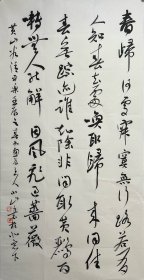 春歸何處寂寞無行路若有
人知春去處喚取歸來同住
春無踪迹誰知除非問取黄鸝百
囀無人能解因風飛過薔薇